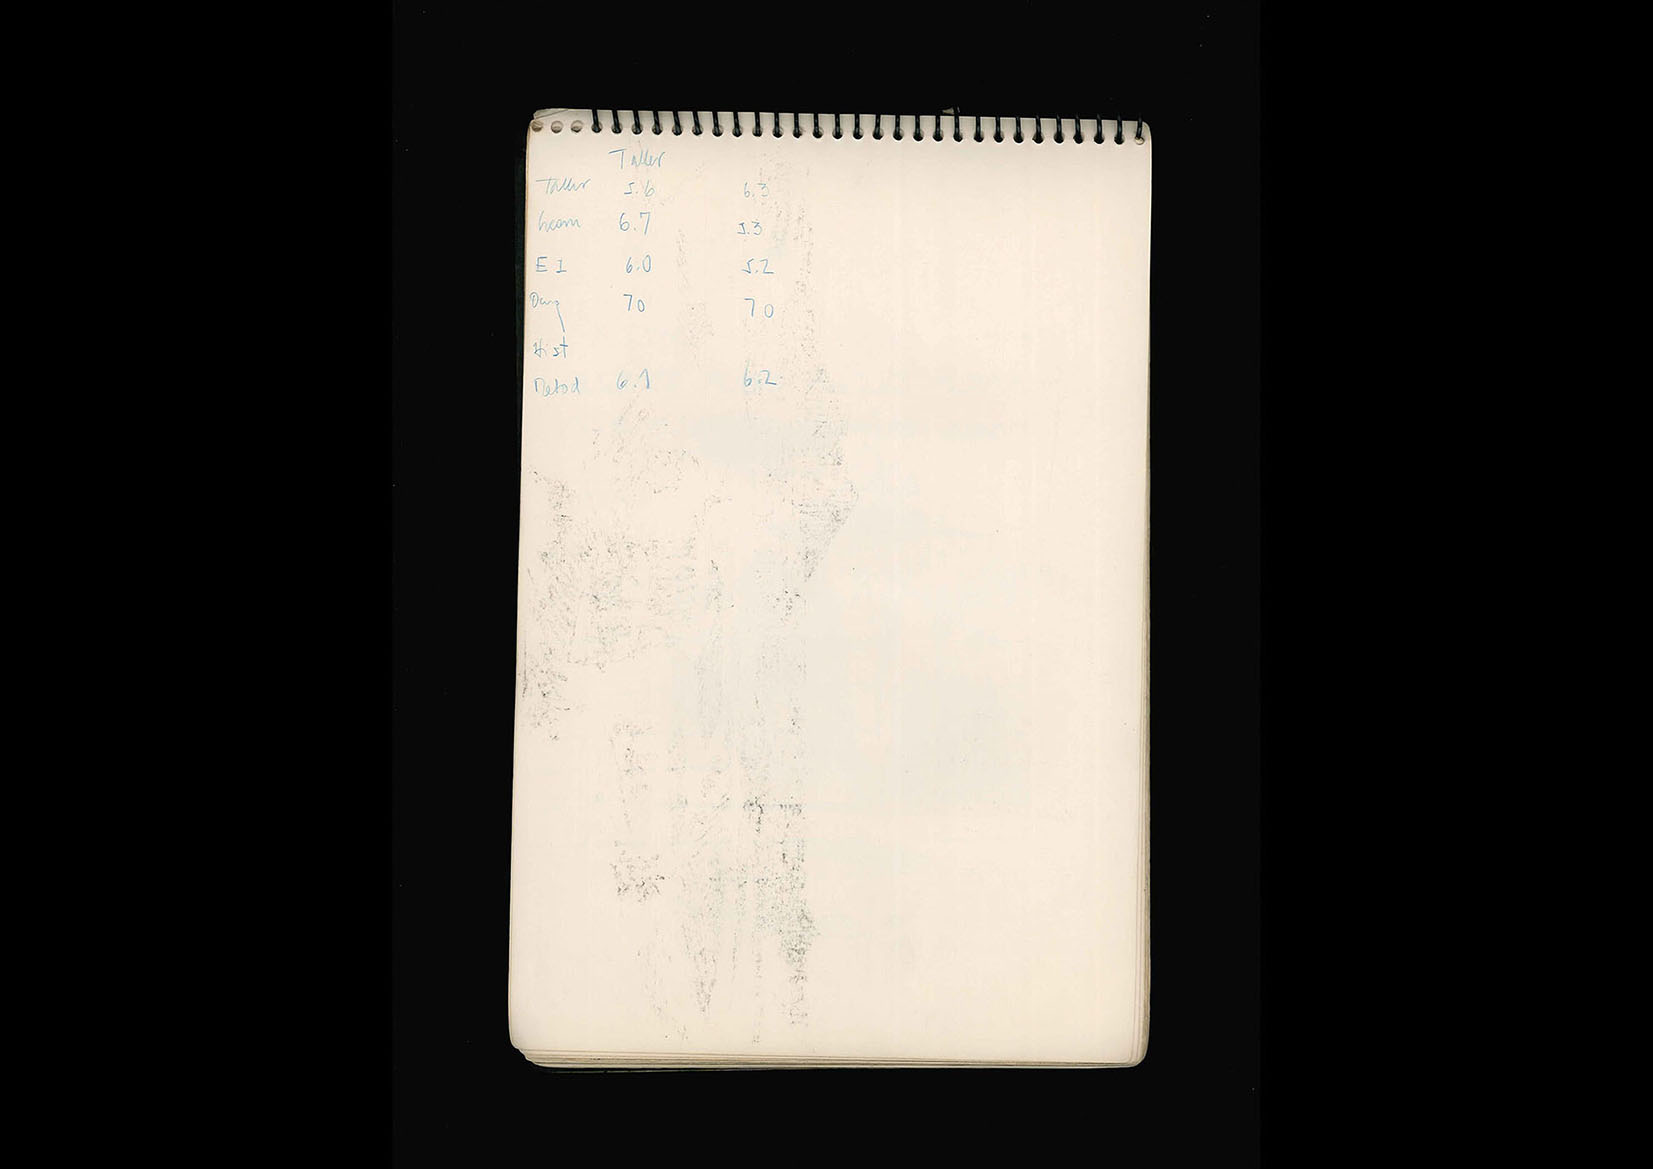 Taller
Taller 5.6 6.3
Geom 6.7 5.3
E I 6.0 5.2
70 70
Hist
Metod 6.1 6.2